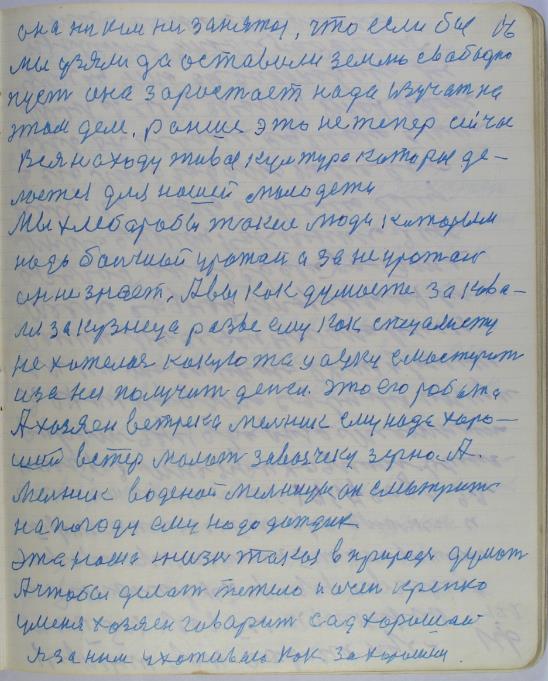 она ни ким ни занятая, что если бы
мы узяли да оставили землю свабодно
пуст она заростает нада изучат на
этом дел. раньше это не тепер сичас
вся находу живая културо которые де-
лоется для нашей молодежи
Мы хлебаробы такие люди которым
надо болшой урожай а за не урожай
он не знает. Авы как думаете за кова-
ля за кузнеца разве ему как специалисту
не хотелося какую та уауку смастерит
и за ни получит денги. это его робата
А хозяен ветрека мелник ему надо харо-
ший ветер молот завозчеку зурно. А.
мелник воденой мелници он смотрит
на погоду ему надо дождик
эта наша жизн такая в природе думат
А чтобы делат тежело и очен крепко
у меня хозяен говарит сад хороший
я за ним ухаживаю как за хорошим.